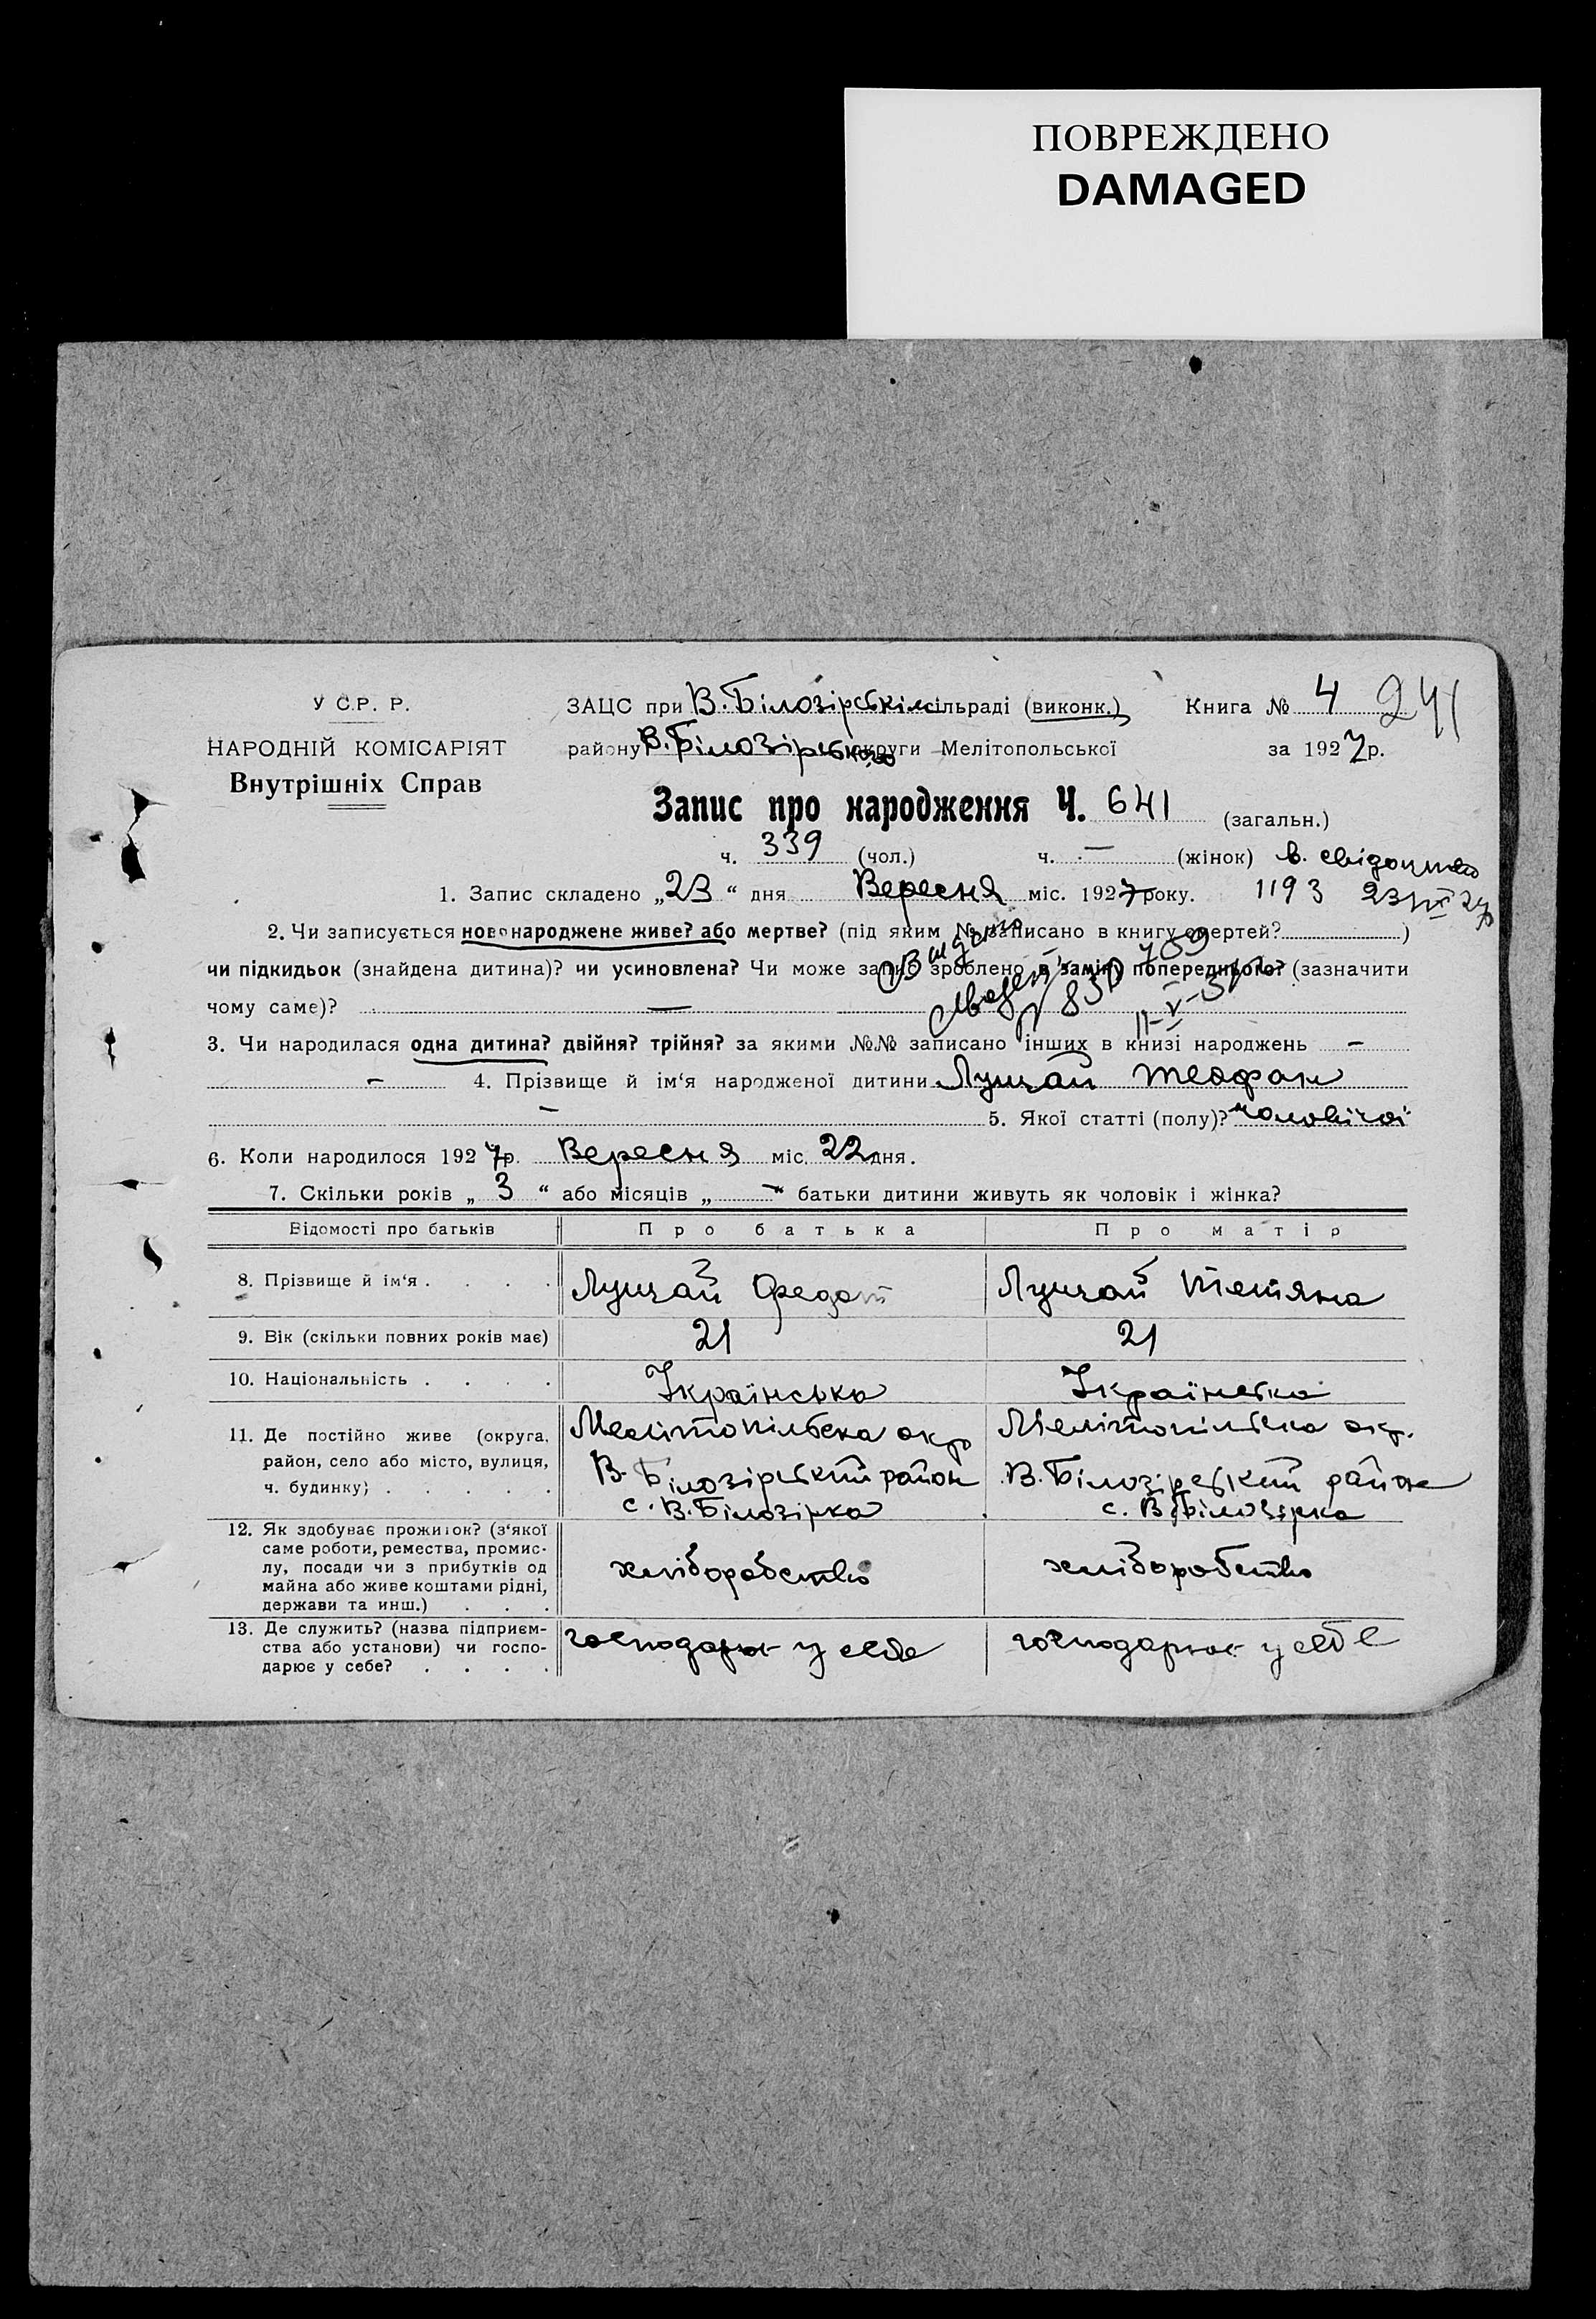 ПОВРЕЖДЕНО
DAMAGED
У С.Р. Р.
НАРОДНІЙ КОМІСАРІЯТ
Внутрішніх Справ
ЗАЦС при В. Білозірськім сільраді (виконк.)
району В. Білозірського округи Мелітопольської
Книга № 4 241
за 1927 р.
Запис про народження Ч. 641 (загальн.)
ч. 339 (чол.) ч. — (жінок) в.
1. Запис складено „23“ дня Вересня міс. 1927 року. 1193 23
2. Чи записується новонароджене живе? або мертве? (під яким № записано в книгу смертей? )
чи підкидьок (знайдена дитина)? чи усиновлена? Чи може запис зроблено в заміну попереднього? (зазначити
чому саме)? —
3. Чи народилася одна дитина? двійня? трійня? за якими №№ записано інших в книзі народжень –
– 4. Прізвище й ім‘я народженої дитини Лущай Теофан
– 5. Якої статті (полу)? чоловічої
6. Коли народилося 1927 р. Вересня міс. 22 дня.
7. Скільки років „ 3 “ або місяців „ – “ батьки дитини живуть як чоловік і жінка?
Відомості про батьків Про батька Про матір
8. Прізвище й ім‘я . . . . Лущай Федот Лущай Тетяна
9. Вік (скільки повних років має) 21 21
10. Національність . . . . Українська Українська
11. Де постійно живе (округа, район, село або місто, вулиця, ч. будинку) . . . . .
Мелітопільська окр
В. Білозірський район
с. В. Білозірка
Мелітопільська окр.
В. Білозірський район
с. В. Білозірка
12. Як здобуває прожиток? (з‘якої
саме роботи, ремества, промис-
лу, посади чи з прибутків од
майна або живе коштами рідні,
держави та инш.) . . .
хліборобство хліборобство
13. Де служить? (назва підприєм-
ства або установи) чи госпо-
дарює у себе? . . . .
господарює у себе господарює у себе